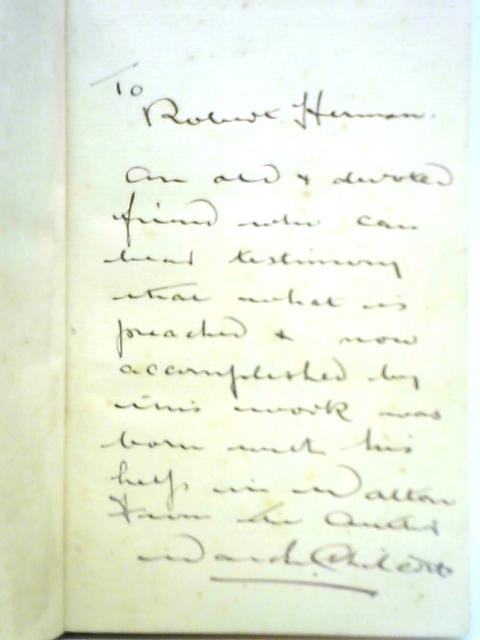 To
Robert Herman.
An old & devoted
friend who can
bear testimony
that what is
preached & now
accomplished by
this work was
born with his
help in Walton
From the Author